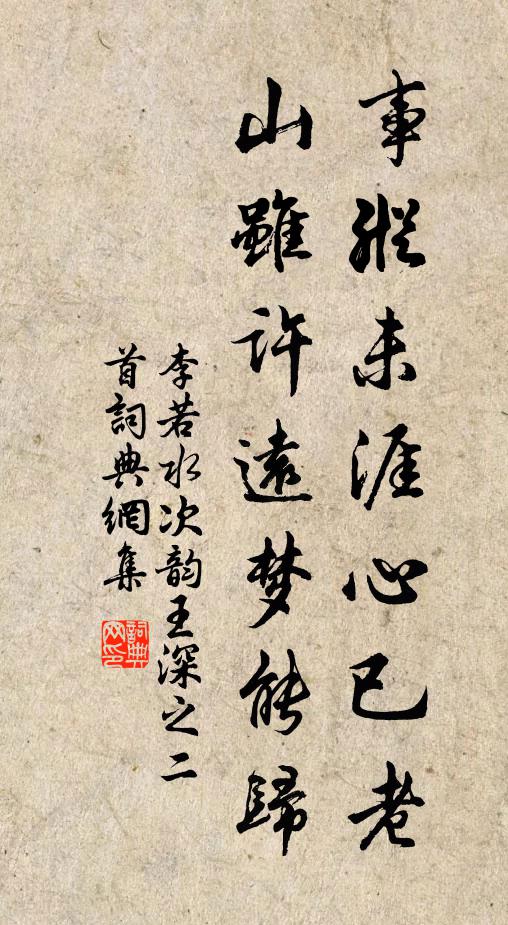 事縱未涯心已老
山雖許遠梦能歸
李若水次韵王深之二
首詞典網集
詞典
网印